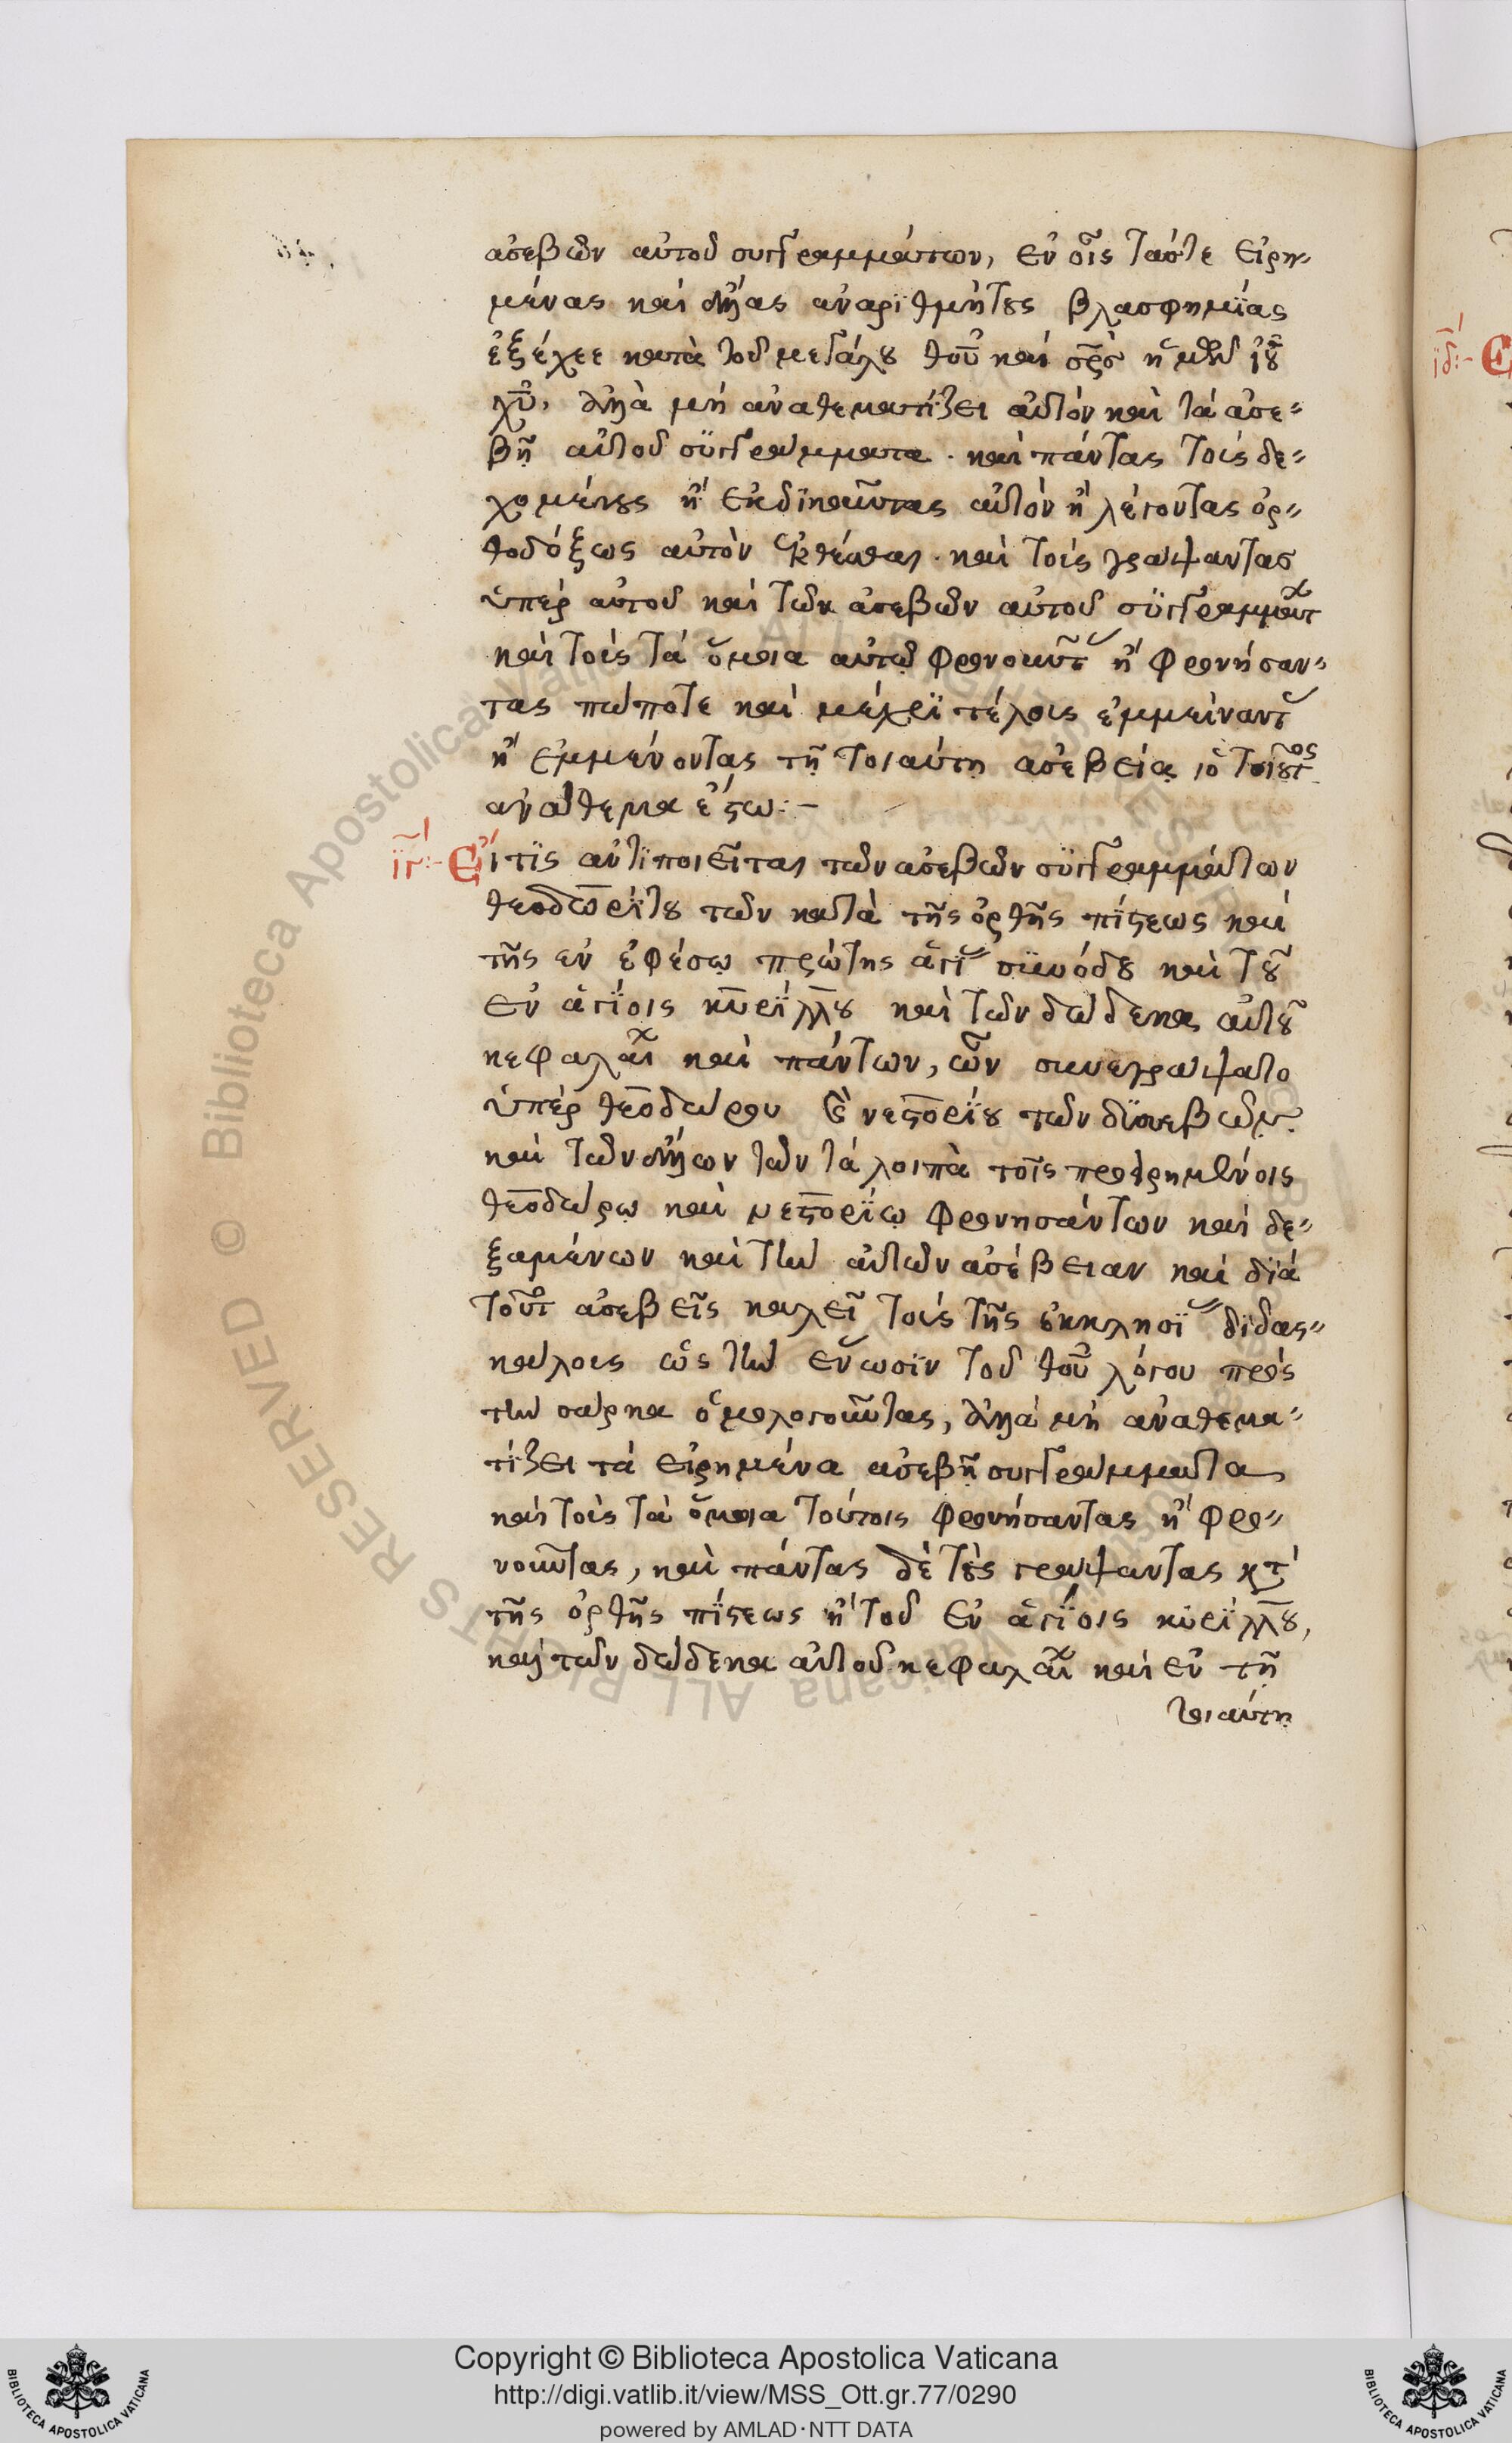 ἀσεβῶν αὐτοῦ συγγραμμάτων, ἐν οἷς τάς τε εἰρη-
μένας καὶ ἄλλας ἀναριθμήτους βλασφημίας
ἐξέχεε κατὰ τοῦ μεγάλου θοῦ καὶ σρς ἡμῶν ἰυ
χυ, ἀλλὰ μὴ ἀναθεματίζει αὐτὸν καὶ τὰ ἀσε-
βῆ αὐτοῦ συγγράμματα. καὶ πάντας τοὺς δε-
χομένους ἢ ἐκδικοῦντας αὐτὸν ἢ λέγοντας ὀρ-
θοδόξως αὐτὸν ἐκθέσθαι. καὶ τοὺς γράψαντας
ὑπὲρ αὐτοῦ καὶ τῶν ἀσεβῶν αὐτοῦ συγγραμμάτ
καὶ τοὺς τὰ ὅμοια αὐτῷ φρονοῦντ ἢ φρονήσαν-
τας πώποτε καὶ μέχρι τέλους ἐμμείναντ
ἢ ἐμμένοντας τῇ τοιαύτῃ ἀσεβείᾳ, ὁ τοιοῦτος
ἀνάθεμα ἔστω:-
ιγ:- Εἴ τις ἀντιποιεῖται τῶν ἀσεβῶν συγγραμμάτων
θεοδωρίτου τῶν κατὰ τῆς ὀρθῆς πίστεως καὶ
τῆς ἐν ἐφέσῳ πρώτης ἁγί συνόδου καὶ τοῦ
ἐν ἁγίοις κυρίλλου καὶ τῶν δώδεκα αὐτοῦ
κεφαλαί καὶ πάντων, ὧν συνεγράψατο
ὑπὲρ θεοδώρου καὶ νεστορίου τῶν δυσσεβῶν.
καὶ τῶν ἄλλων τῶν τὰ λοιπὰ τοῖς προειρημένοις
θεοδώρῳ καὶ νεστορίῳ φρονησάντων καὶ δε-
ξαμένων καὶ τὴν αὐτῶν ἀσέβειαν καὶ διὰ
τοῦτ ἀσεβεῖς καλεῖ τοὺς τῆς ἐκκλησί διδας-
κάλους ὡς τὴν ἕνωσιν τοῦ θοῦ λόγου πρὸς
τὴν σάρκα ὁμολογοῦντας, ἀλλὰ μὴ ἀναθεμα-
τίζει τὰ εἰρημένα ἀσεβῆ συγγράμματα
καὶ τοὺς τὰ ὅμοια τούτοις φρονήσαντας ἢ φρο-
νοῦντας, καὶ πάντας δὲ τοὺς γράψαντας κτ
τῆς ὀρθῆς πίστεως ἢ τοῦ ἐν ἁγίοις κυρίλλου,
καὶ τῶν δώδεκα αὐτοῦ κεφαλαί καὶ ἐν τῇ
τοιαύτῃ
ιδ:- Ε
© Biblioteca Apostolica Vaticana ALL RIGHTS RESERVED
Copyright © Biblioteca Apostolica Vaticana
http://digi.vatlib.it/view/MSS_Ott.gr.77/0290
powered by AMLAD·NTT DATA
BIBLIOTECA APOSTOLICA VATICANA
BIBLIOTECA APOSTOLICA VATICANA